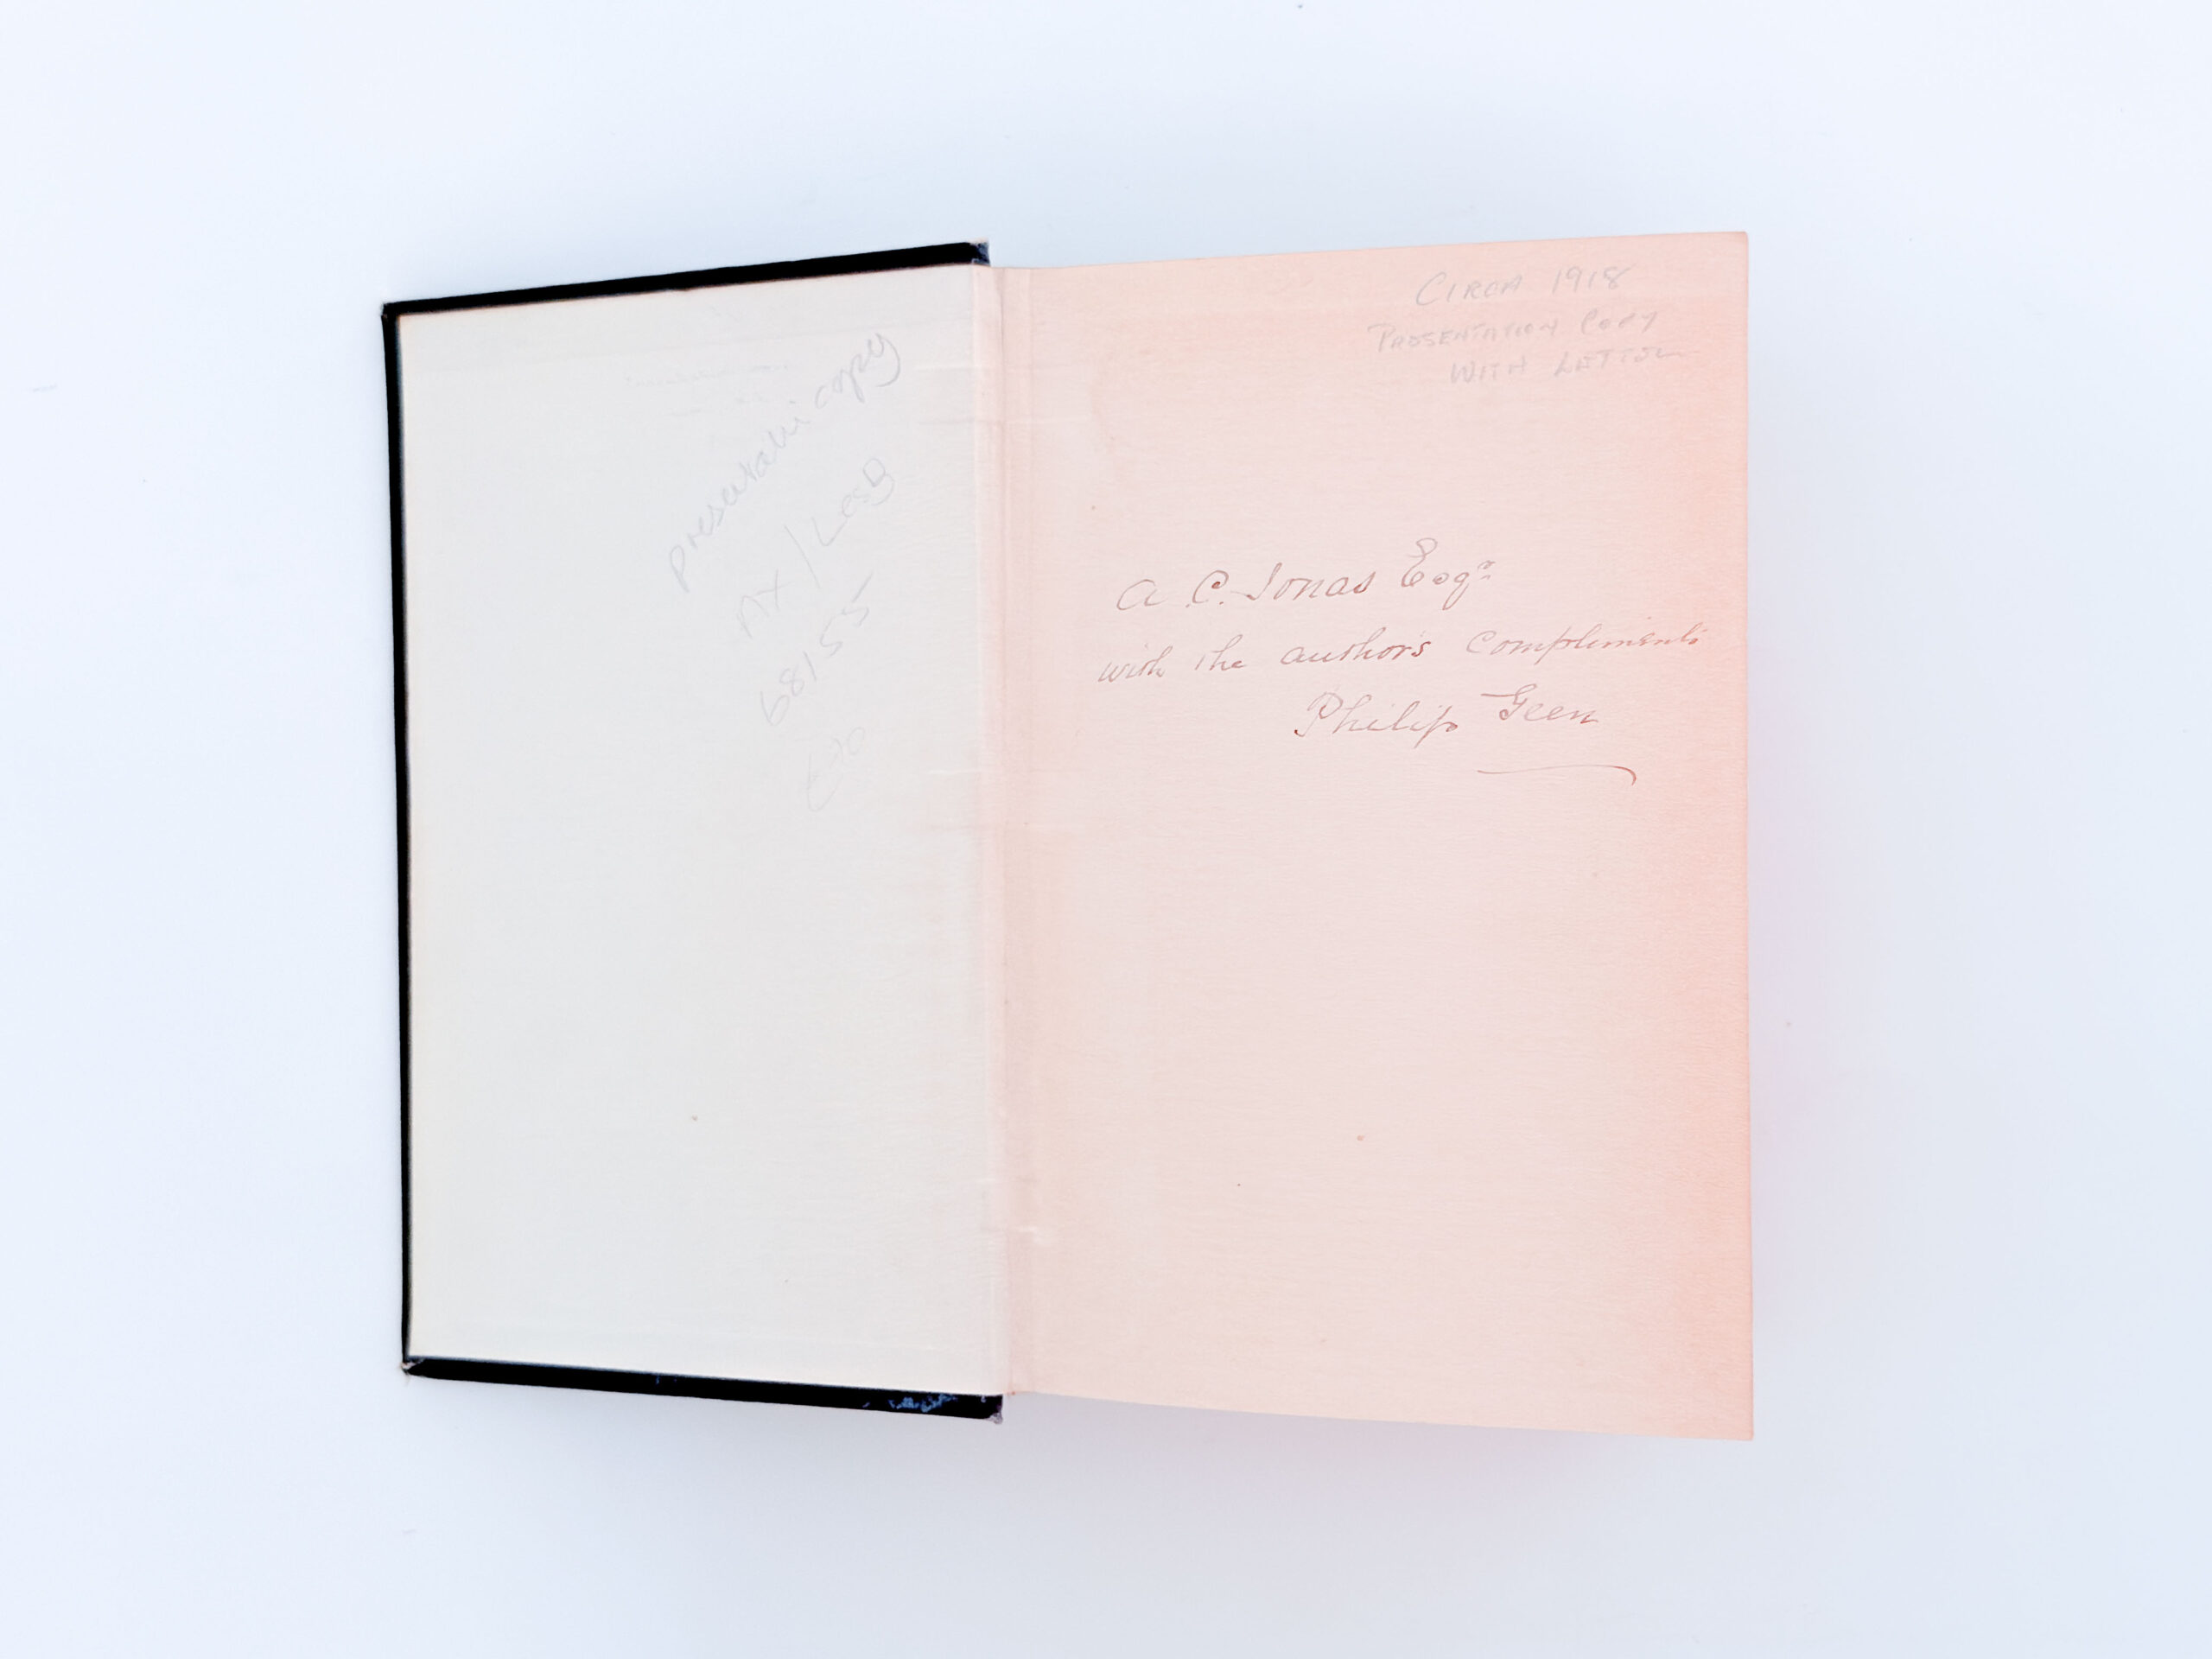 presentation copy
68155
£70
CIRCA 1918
PRESENTATION COPY
WITH LETTER
A. C. Jonas Esqr
with the author's compliments
Philip Geen